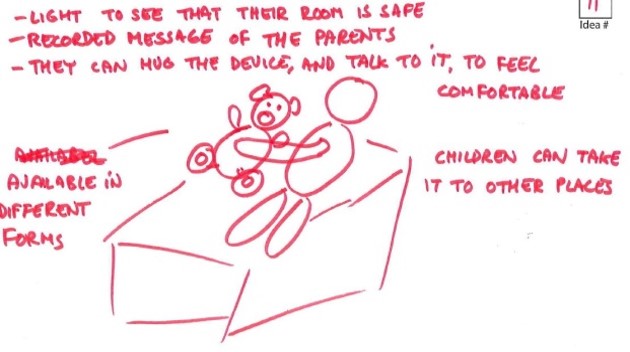 - LIGHT TO SEE THAT THEIR ROOM IS SAFE
- RECORDED MESSAGE OF THE PARENTS
- THEY CAN HUG THE DEVICE, AND TALK TO IT, TO FEEL
COMFORTABLE
11
Idea #
AVAILABLE IN
DIFFERENT
FORMS
CHILDREN CAN TAKE
IT TO OTHER PLACES